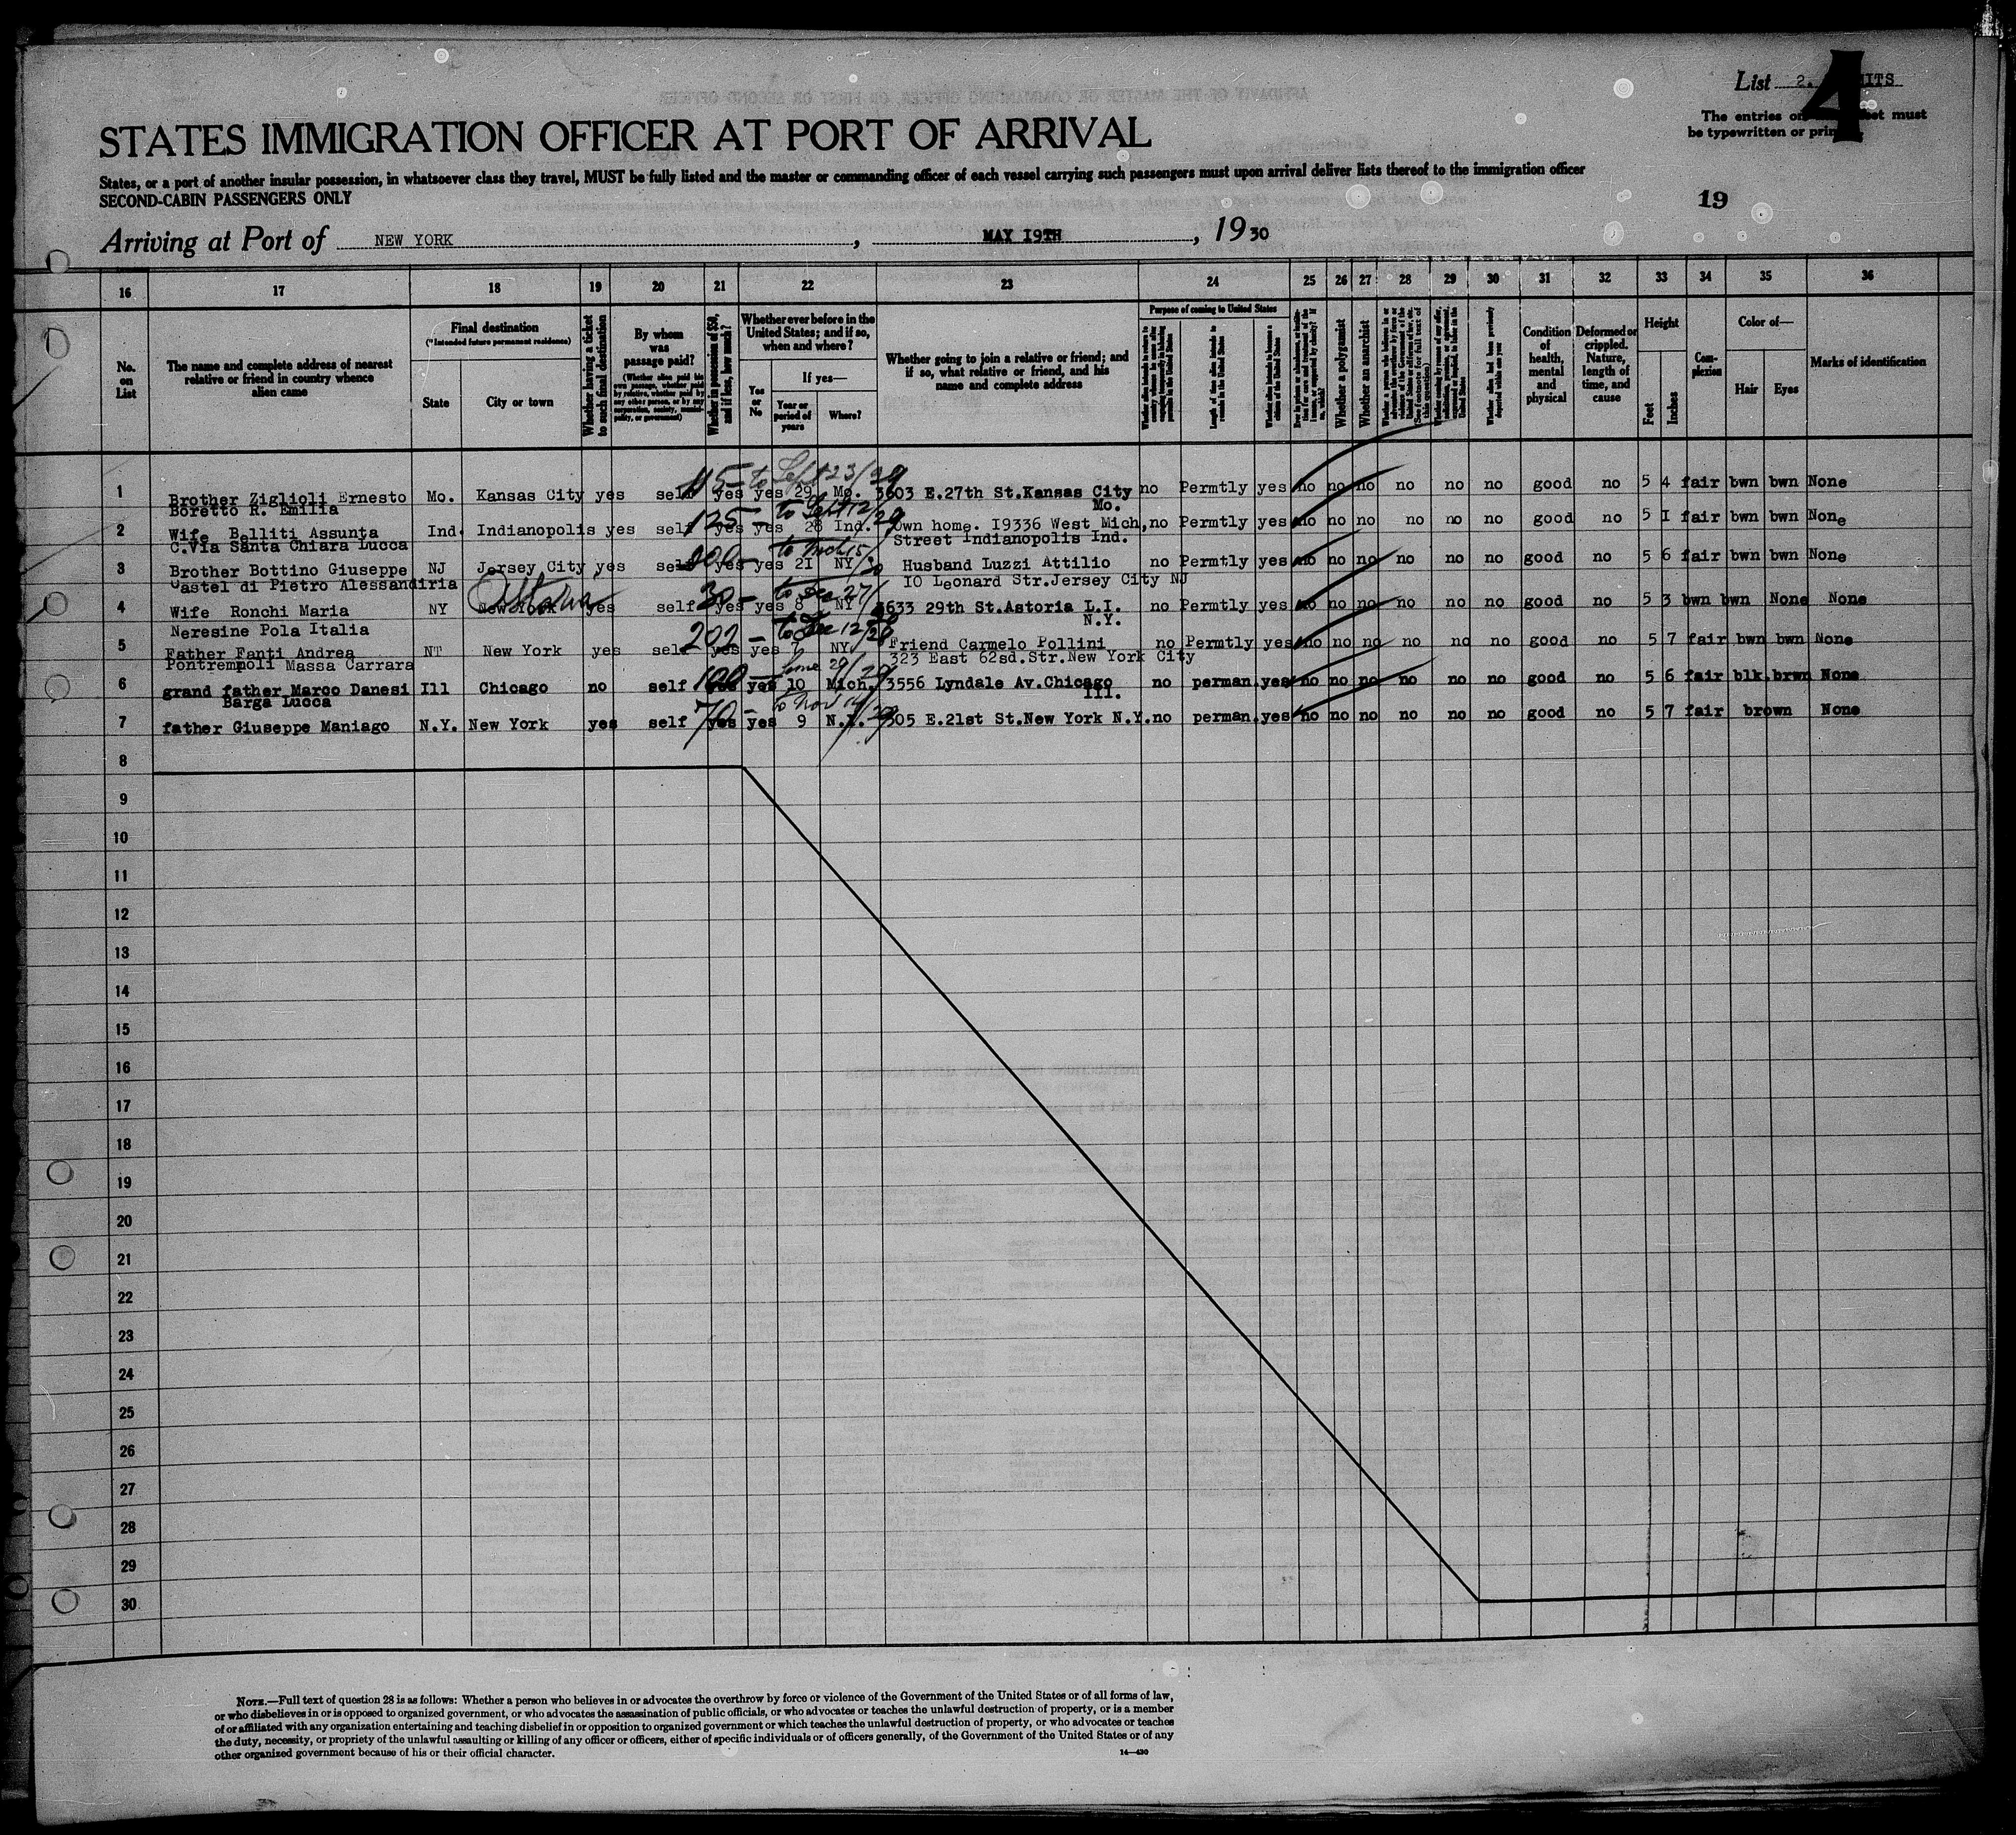 List 2.
4
The entries on must
be typewritten or
STATES IMMIGRATION OFFICER AT PORT OF ARRIVAL
States, or a port of another insular possession, in whatsoever class they travel, MUST be fully listed and the master or commanding officer of each vessel carrying such passengers must upon arrival deliver lists thereof to the immigration officer
SECOND-CABIN PASSENGERS ONLY
19
Arriving at Port of NEW YORK, MAY 19TH, 1930
16 17 18 19 20 21 22 23 24 25 26 27 28 29 30 31 32 33 34 35 36
No. on List
The name and complete address of nearest relative or friend in country whence alien came
Final destination
(*Intended future permanent residence)
State
City or town
Whether having a ticket to such final destination
By whom was passage paid?
(Whether alien paid his own passage, whether paid by relative, whether paid by any other person, or by any corporation, society, municipality, or government)
Whether in possession of $50, and if less, how much?
Whether ever before in the United States; and if so, when and where?
Yes or No
If yes—
Year or period of years
Where?
Whether going to join a relative or friend; and if so, what relative or friend, and his name and complete address
Purpose of coming to United States
Length of time alien intends to remain in the United States
Whether alien intends to become a citizen of the United States
Whether a polygamist
Whether an anarchist
Whether alien had been previously deported within one year
Condition of health, mental and physical
Deformed or crippled. Nature, length of time, and cause
Height
Feet
Inches
Complexion
Color of—
Hair
Eyes
Marks of identification
115 – to Sept 23/29
1 Brother Ziglioli Ernesto Mo. Kansas City yes self yes yes 29 Mo. 3603 E.27th St.Kansas City no Permtly yes no no no no no no good 5 4 fair bwn bwn None
Boretto R. Emilia Mo.
125 – to Sept 12/29
2 Wife Belliti Assunta Ind. Indianopolis yes self yes yes 28 Ind. Own home. I9336 West Mich, no Permtly yes no no no no no no good no 5 I fair bwn bwn None
C.Via Santa Chiara Lucca Street Indianopolis Ind.
3 Brother Bottino Giuseppe NJ Jersey City yes self yes yes 2I NY Husband Luzzi Attilio no Permtly yes no no no no no no good no 5 6 fair bwn bwn None
Castel di Pietro Alessandiria IO Leonard Str.Jersey City NJ
Astoria 30 –
4 Wife Ronchi Maria NY New York yes self yes yes 8 NY 3633 29th St.Astoria L.I. no Permtly yes no no no no no no good no 5 3 bwn bwn None None
N.Y.
Neresine Pola Italia
202 –
5 Father Fanti Andrea NT New York yes self yes yes 7 NY Friend Carmelo Pollini no Permtly yes no no no no no no good no 5 7 fair bwn bwn None
Pontrempoli Massa Carrara 323 East 62sd.Str.New York City
100 –
6 grand father Marco Danesi Ill Chicago no self yes yes 10 Mich. 3556 Lyndale Av.Chicago no perman. yes no no no no no no good no 5 6 fair blk. brwn None
Barga Lucca Ill.
70 – to Nov
7 father Giuseppe Maniago N.Y. New York yes self yes yes 9 N.Y. 305 E.21st St.New York N.Y. no perman. yes no no no no no no good no 5 7 fair brown None
8
9
10
11
12
13
14
15
16
17
18
19
20
21
22
23
24
25
26
27
28
29
30
NOTE.—Full text of question 28 is as follows: Whether a person who believes in or advocates the overthrow by force or violence of the Government of the United States or of all forms of law,
or who disbelieves in or is opposed to organized government, or who advocates the assassination of public officials, or who advocates or teaches the unlawful destruction of property, or is a member
of or affiliated with any organization entertaining and teaching disbelief in or opposition to organized government or which teaches the unlawful destruction of property, or who advocates or teaches
the duty, necessity, or propriety of the unlawful assaulting or killing of any officer or officers, either of specific individuals or of officers generally, of the Government of the United States or of any
other organized government because of his or their official character.
14—430